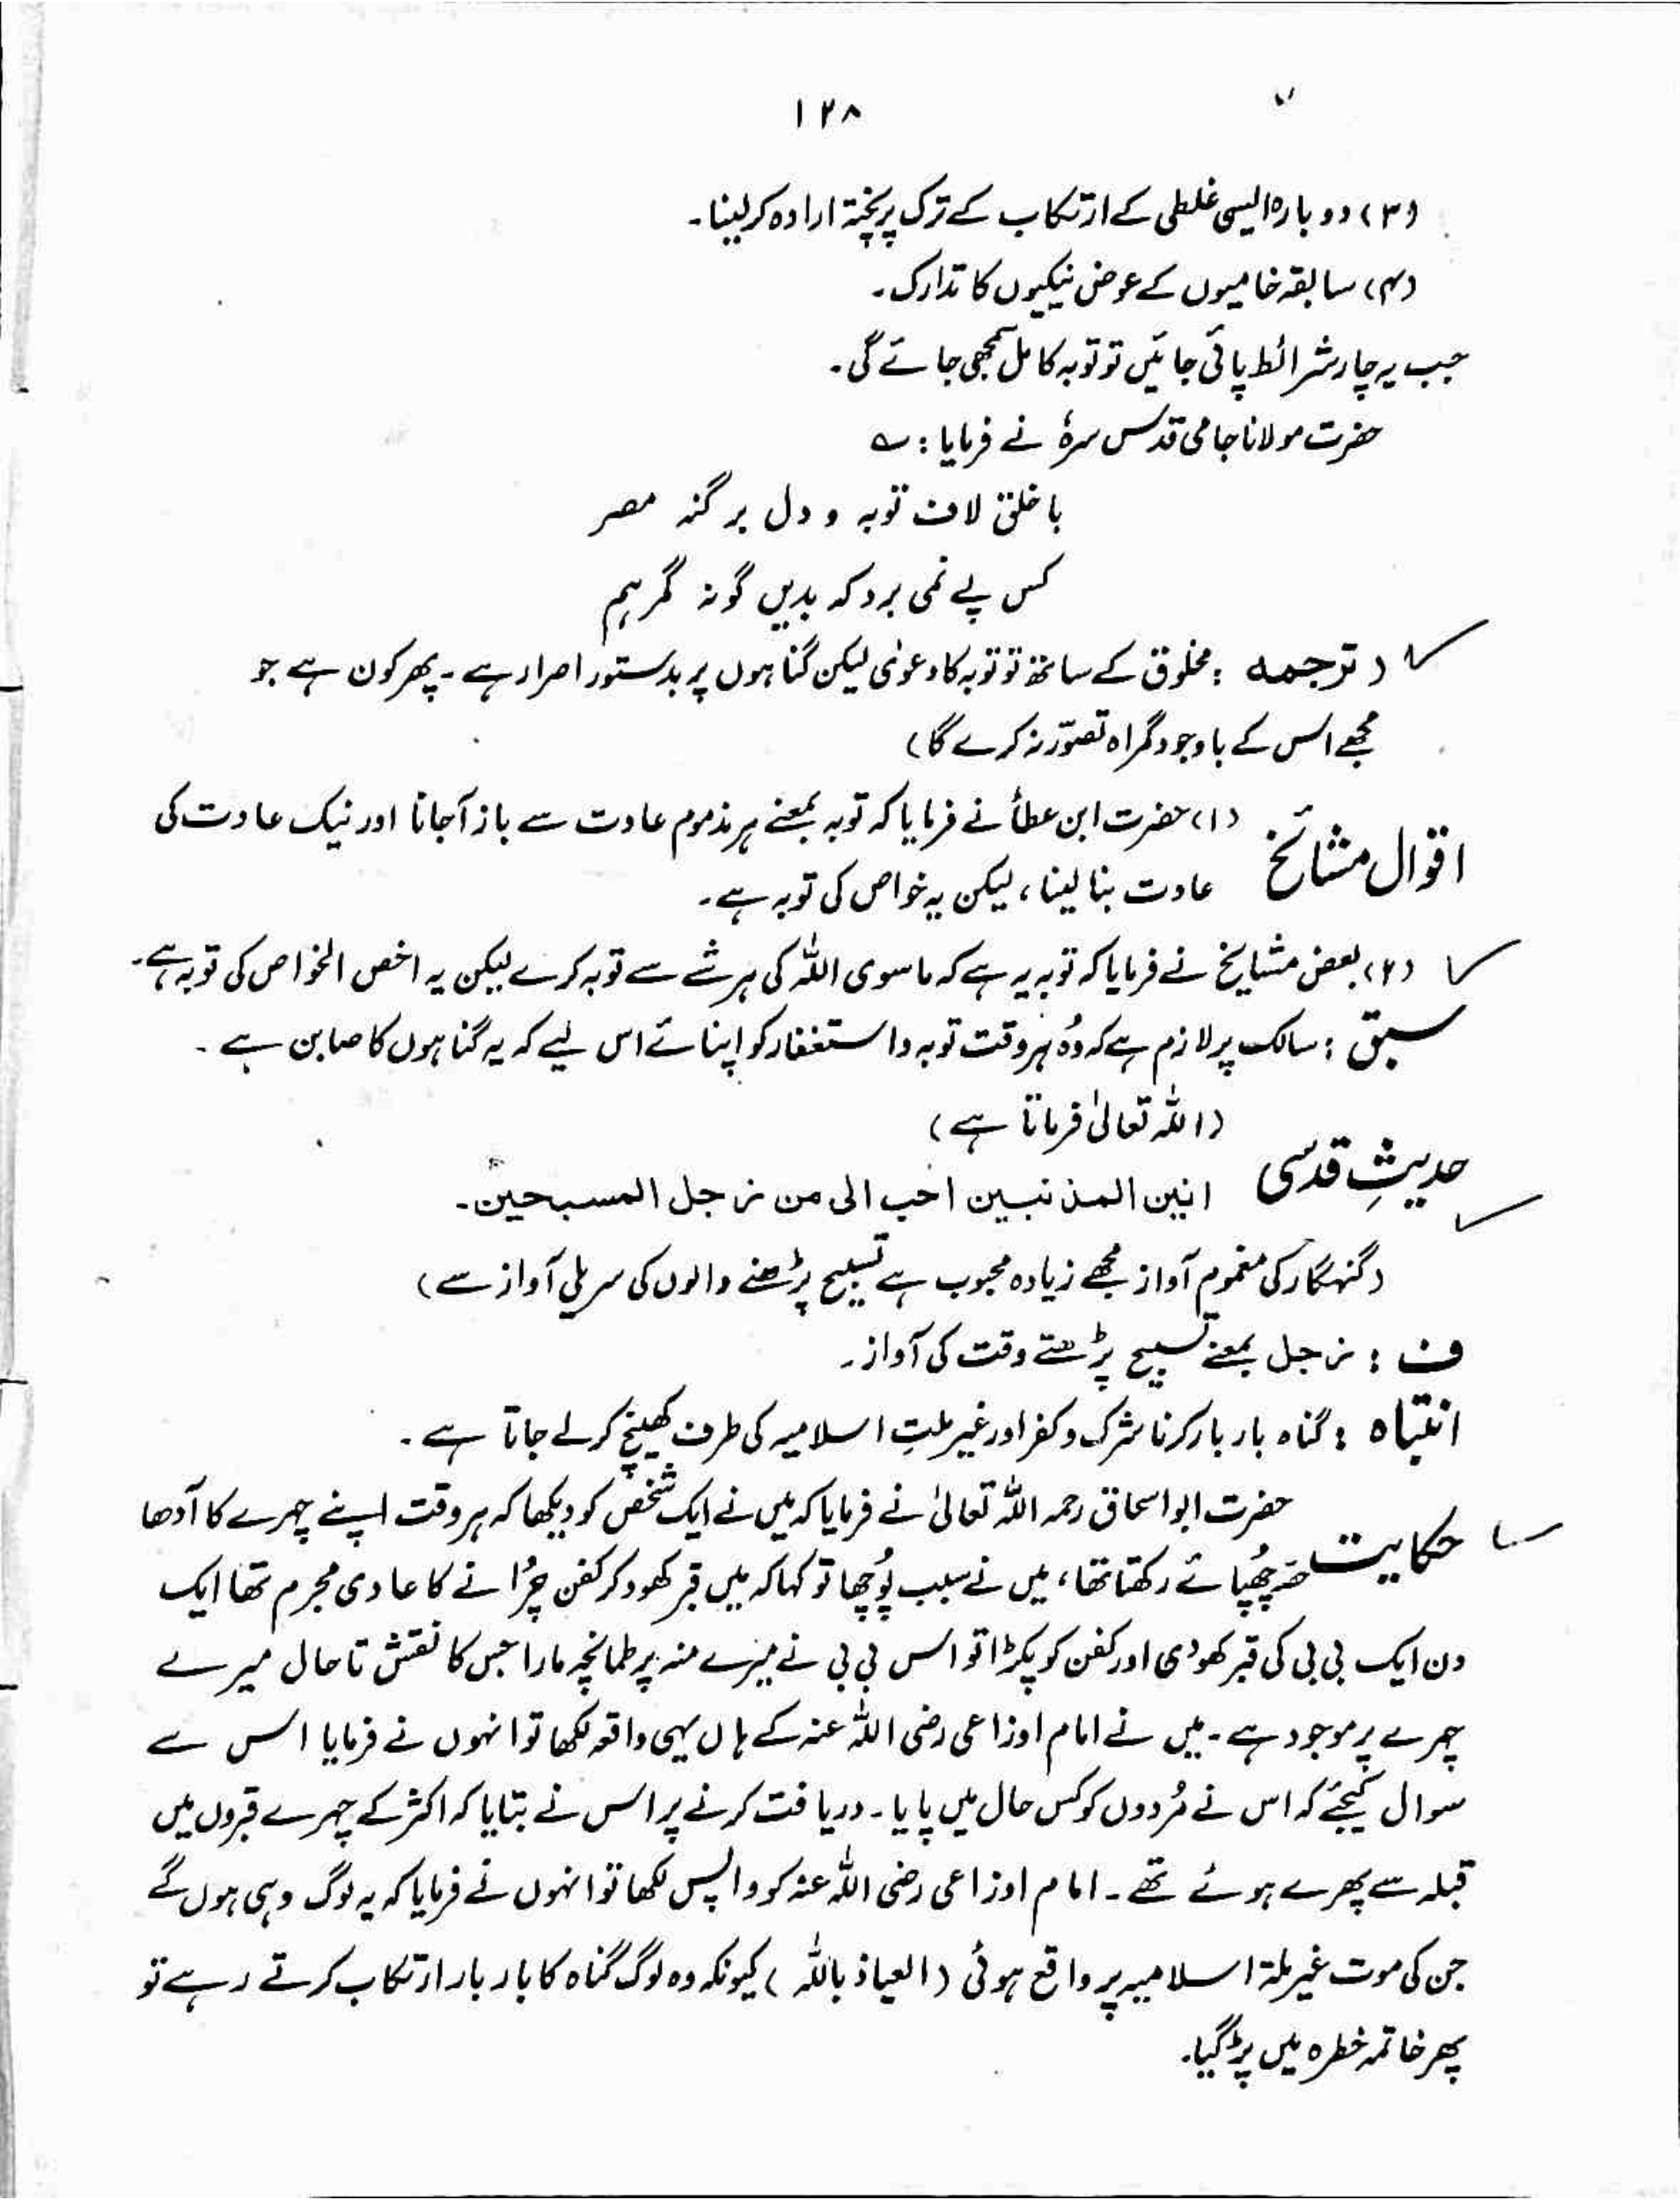 ۱۲۸
(۳) دوبارہ ایسی غلطی کے ارتکاب کے ترک پر پختہ ارادہ کرلینا۔
(۴) سابقہ خامیوں کے عوض نیکیوں کا تدارک۔
جب یہ چار شرائط پائی جائیں تو توبہ کامل سمجھی جائے گی۔
حضرت مولانا جامی قدس سرہٗ نے فرمایا : ؎
با خلق لاف توبہ و دل بر گنہ مصر
کس پے نمی برد کہ بدیں گونہ گمرہیم
(ترجمہ : مخلوق کے ساتھ تو توبہ کا دعوٰی لیکن گناہوں پر بدستور اصرار ہے ۔ پھر کون ہے جو
مجھے اس کے باوجود گمراہ تصوّر نہ کرے گا)
اقوال مشائخ (۱) حضرت ابن عطأ نے فرمایا کہ توبہ بمعنے ہر مذموم عادت سے باز آجانا اور نیک عادت کی
عادت بنا لینا، لیکن یہ خواص کی توبہ ہے۔
(۲) بعض مشایخ نے فرمایا کہ توبہ یہ ہے کہ ماسوی اللہ کی ہر شے سے توبہ کرے لیکن یہ اخص الخواص کی توبہ ہے۔
سبق : سالک پر لازم ہے کہ وُہ ہر وقت توبہ و استغفار کو اپنائے اس لیے کہ یہ گناہوں کا صابن ہے ۔
(اللہ تعالیٰ فرماتا ہے)
حدیثِ قدسی انین المذنبین احب الی من زجل المسبحین۔
(گنہگار کی مغموم آواز مجھے زیادہ محبوب ہے تسبیح پڑھنے والوں کی سریلی آواز سے)
ف : زجل بمعنے تسبیح پڑھتے وقت کی آواز۔
انتباہ : گناہ بار بار کرنا شرک و کفر اور غیر ملتِ اسلامیہ کی طرف کھینچ کر لے جاتا ہے ۔
حضرت ابو اسحاق رحمہ اللہ تعالیٰ نے فرمایا کہ میں نے ایک شخص کو دیکھا کہ ہر وقت اپنے چہرے کا آدھا
حکایت حصّہ چُھپائے رکھتا تھا، میں نے سبب پُوچھا تو کہا کہ میں قبر کھود کر کفن چرُانے کا عادی مجرم تھا ایک
دن ایک بی بی کی قبر کھودی اور کفن کو پکڑا تو اس بی بی نے میرے منہ پر طمانچہ مارا جس کا نقش تا حال میرے
چہرے پر موجود ہے ۔ میں نے امام اوزاعی رضی اللہ عنہ کے ہاں یہی واقعہ لکھا تو انہوں نے فرمایا اس سے
سوال کیجئے کہ اس نے مُردوں کو کس حال میں پایا ۔ دریافت کرنے پر اس نے بتایا کہ اکثر کے چہرے قبروں میں
قبلہ سے پھرے ہوئے تھے ۔ امام اوزاعی رضی اللہ عنہ کو واپس لکھا تو انہوں نے فرمایا کہ یہ لوگ وہی ہوں گے
جن کی موت غیر ملۃ اسلامیہ پر واقع ہوئی (العیاذ باللہ) کیونکہ وہ لوگ گناہ کا بار بار ارتکاب کرتے رہے تو
پھر خاتمہ خطرہ میں پڑ گیا۔